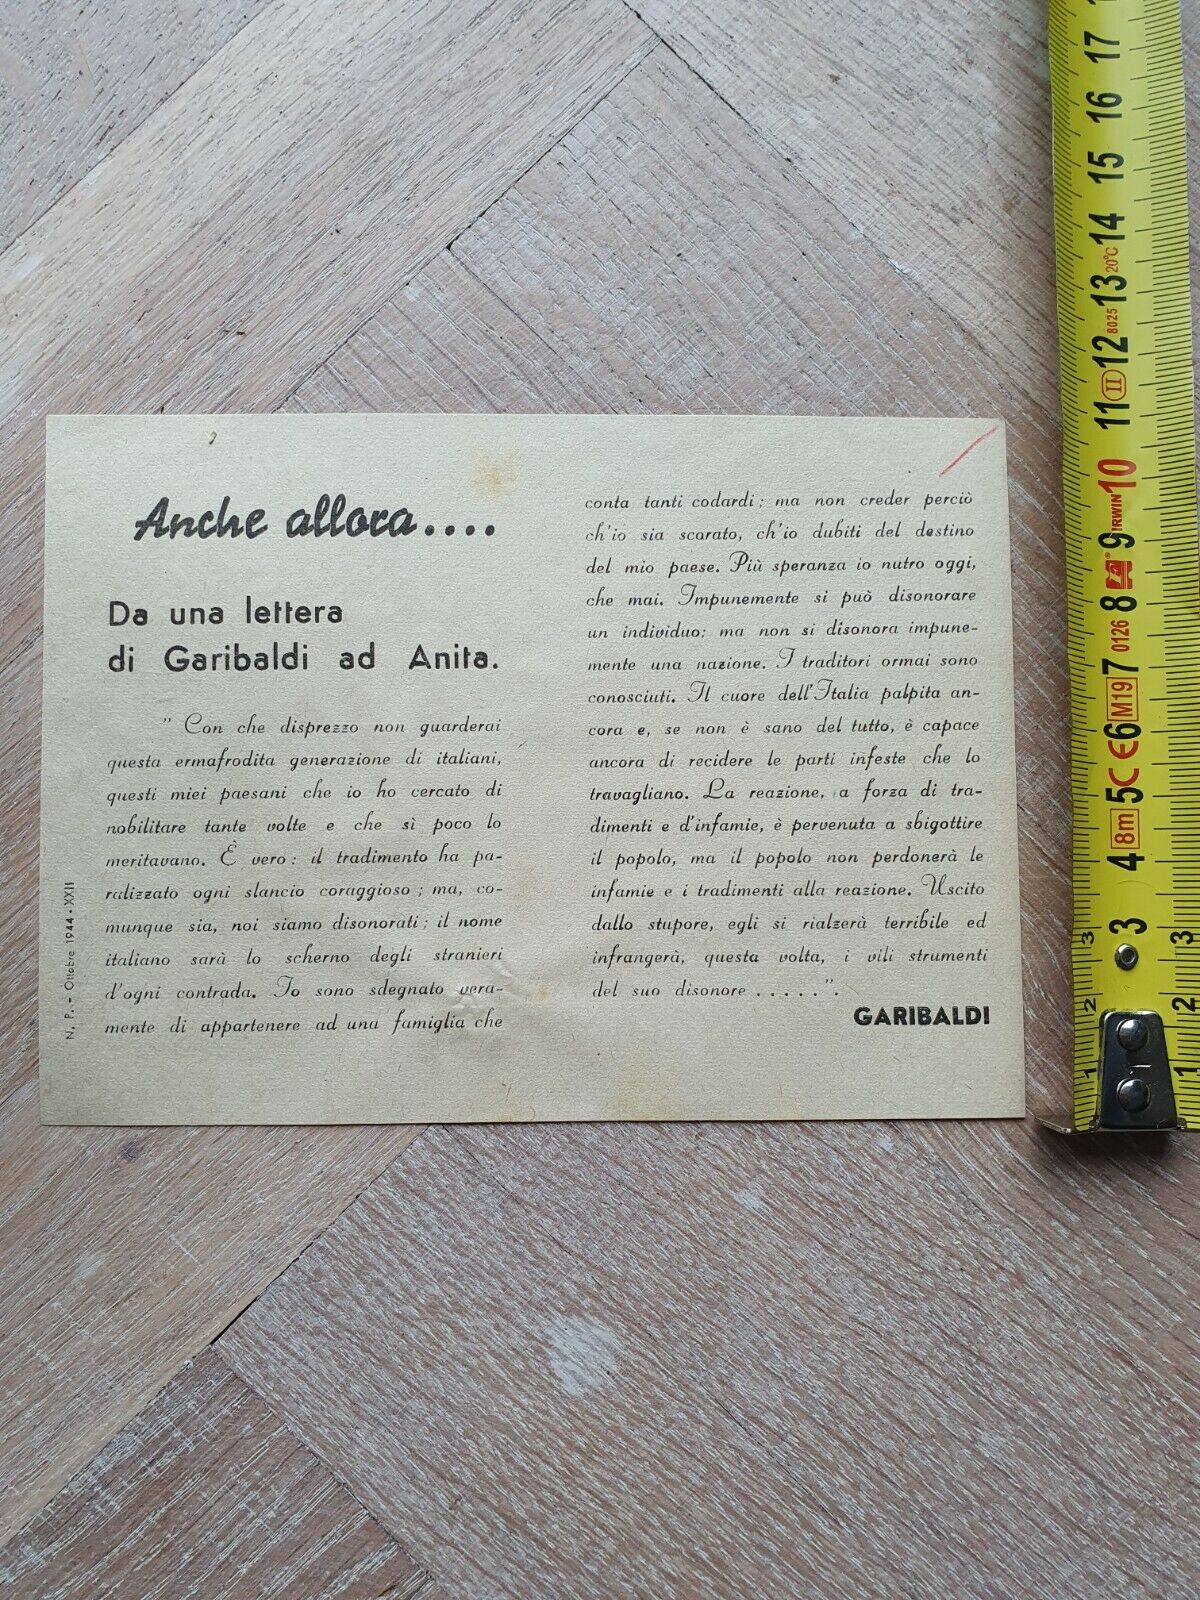 Anche allora....
Da una lettera
di Garibaldi ad Anita.
" Con che disprezzo non guarderai
questa ermafrodita generazione di italiani,
questi miei paesani che io ho cercato di
nobilitare tante volte e che sì poco lo
meritavano. È vero: il tradimento ha pa-
ralizzato ogni slancio coraggioso; ma, co-
munque sia, noi siamo disonorati; il nome
italiano sarà lo scherno degli stranieri
d'ogni contrada. Io sono sdegnato vera-
mente di appartenere ad una famiglia che
conta tanti codardi; ma non creder perciò
ch'io sia scorato, ch'io dubiti del destino
del mio paese. Più speranza io nutro oggi,
che mai. Impunemente si può disonorare
un individuo; ma non si disonora impune-
mente una nazione. I traditori ormai sono
conosciuti. Il cuore dell'Italia palpita an-
cora e, se non è sano del tutto, è capace
ancora di recidere le parti infeste che lo
travagliano. La reazione, a forza di tra-
dimenti e d'infamie, è pervenuta a sbigottire
il popolo, ma il popolo non perdonerà le
infamie e i tradimenti alla reazione. Uscito
dallo stupore, egli si rialzerà terribile ed
infrangerà, questa volta, i vili strumenti
del suo disonore .....".
GARIBALDI
N. P. - Ottobre 1944 - XXII
1 2 3 4 8m 5 CE 6 M19 7 0126 8 9 IRWIN 10 11 II 12 8025 13 20°C 14 15 16 17
1 2 3